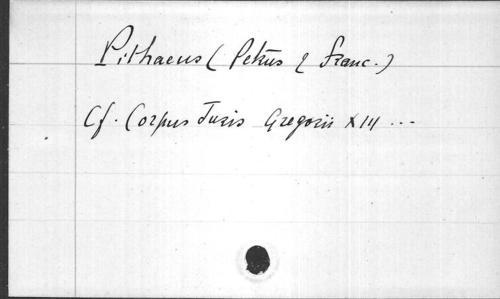 Pithaeus ( Petrus & Franc. )
Cf. Corpus Juris Gregorii XIII ...